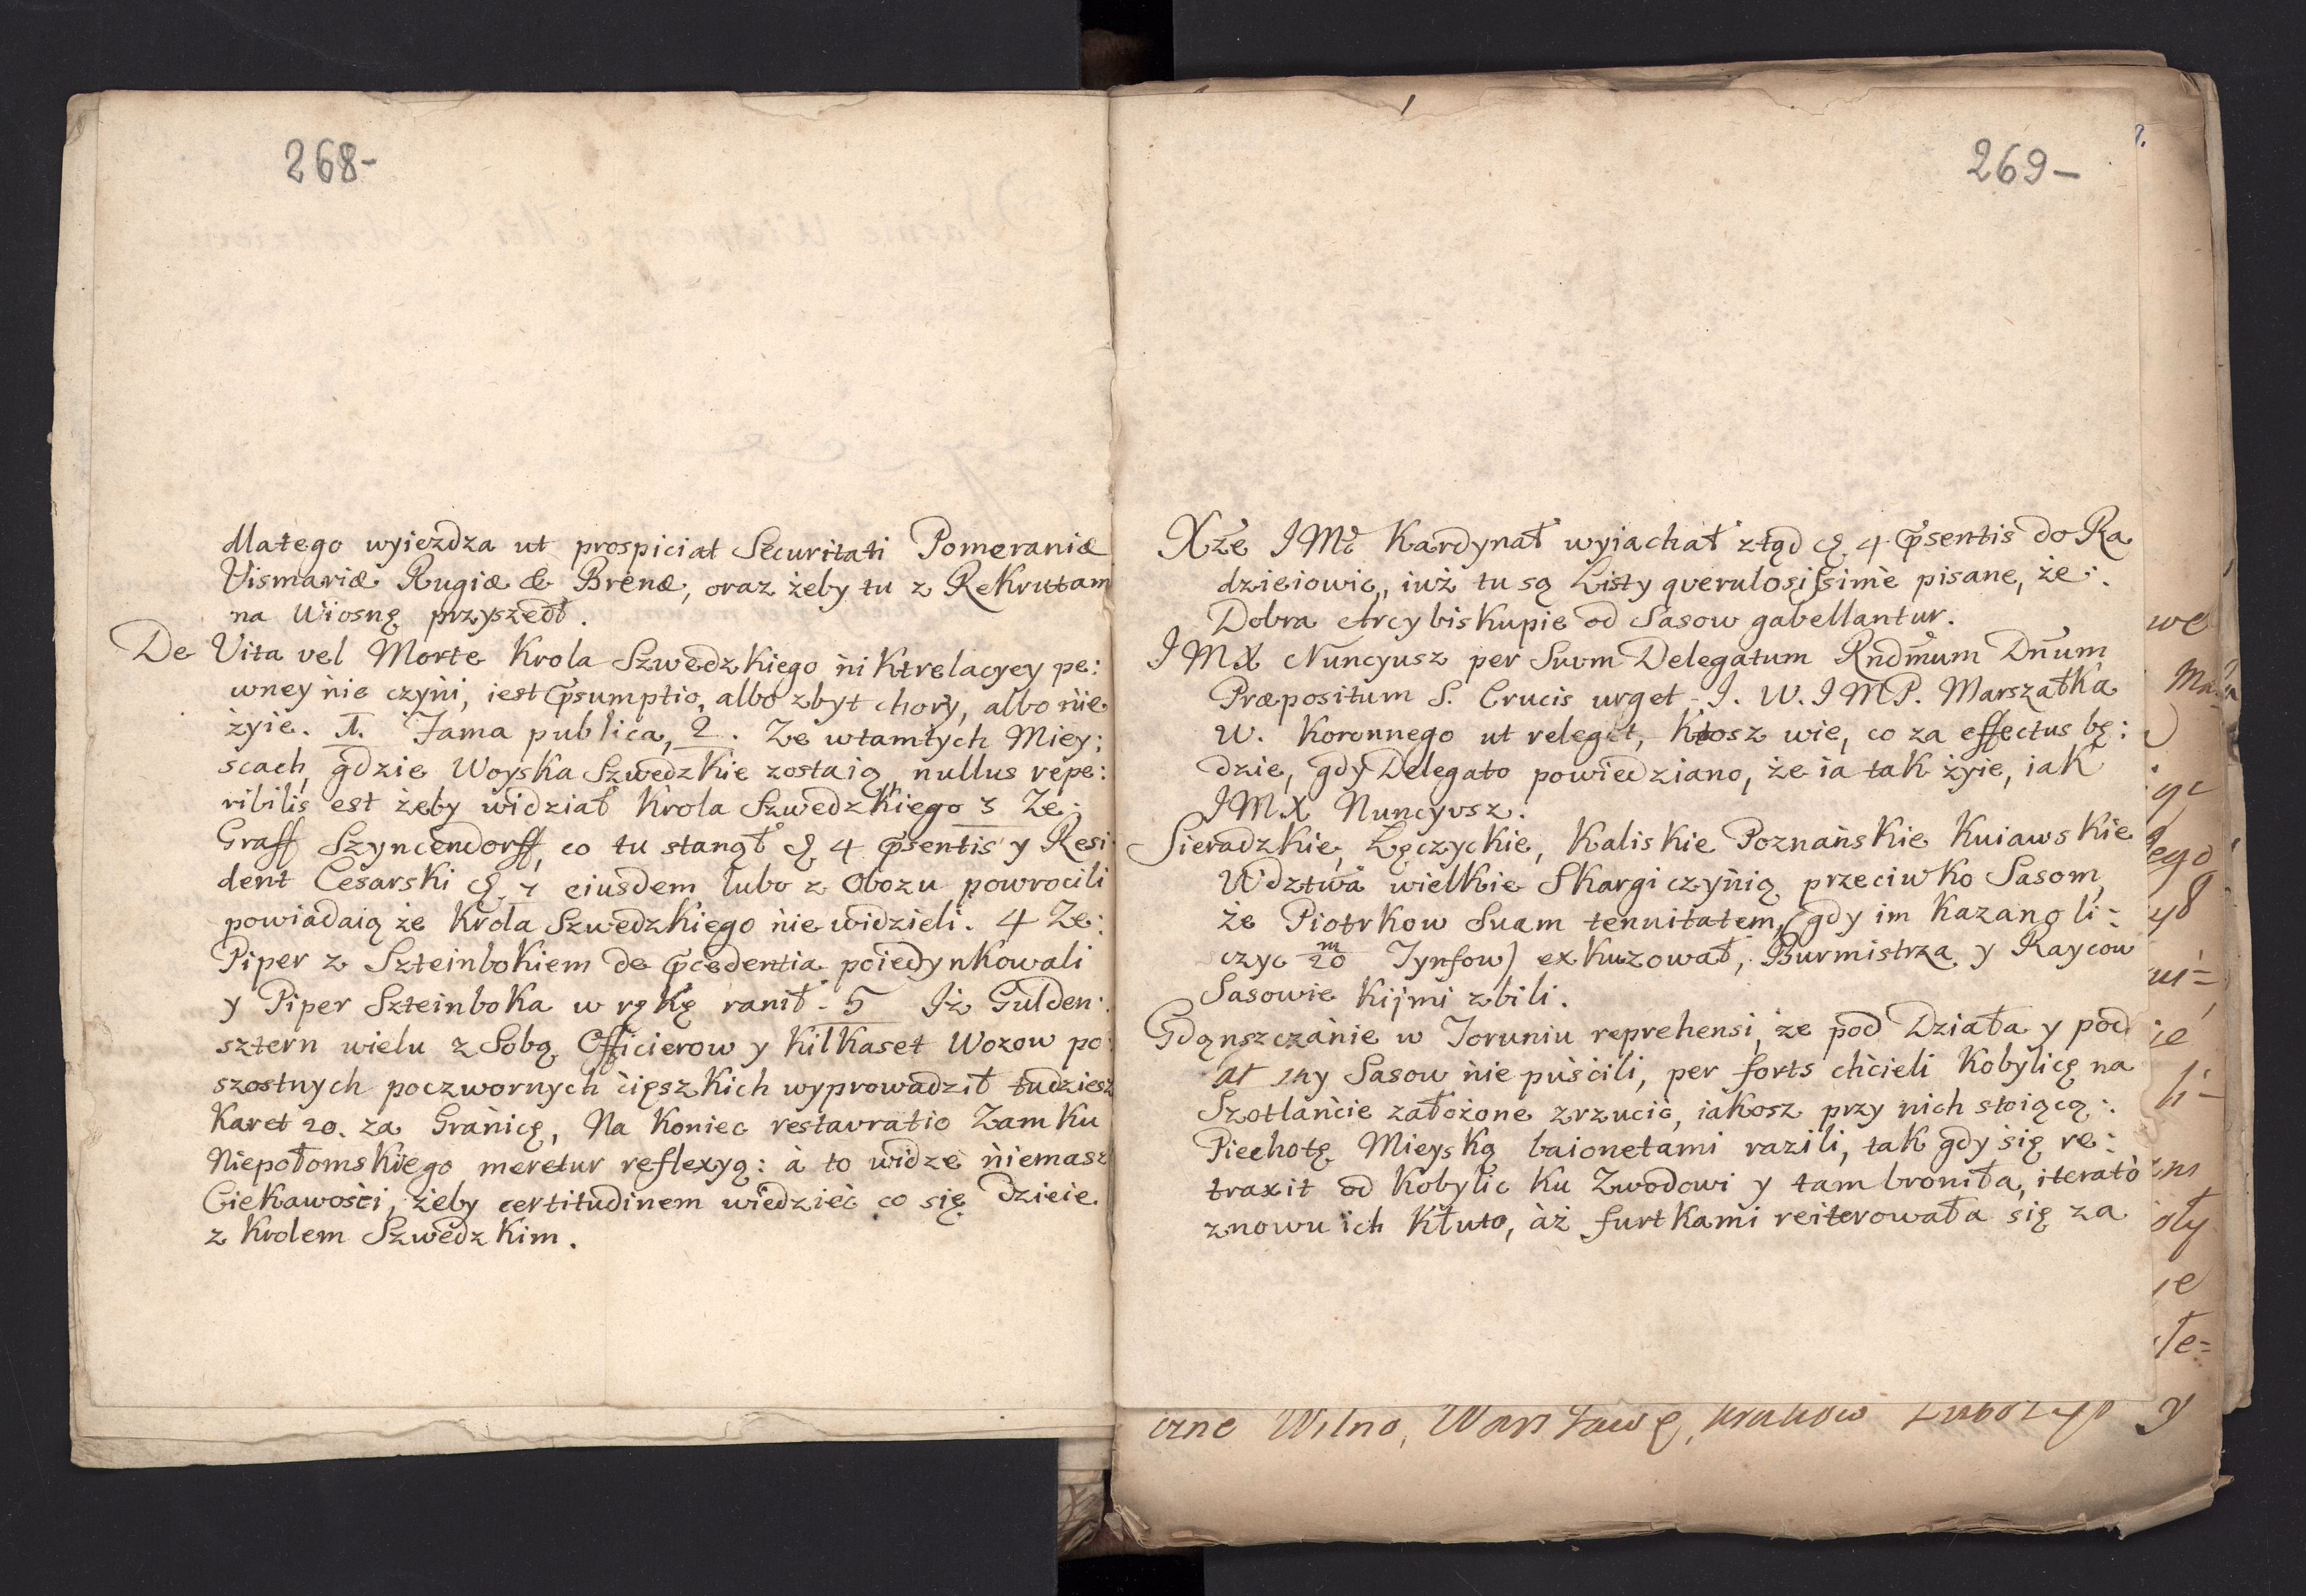 268-
dlatego wyiezdza ut prospiciat Securitati Pomeraniæ
Vismariæ Rugiæ & Brenæ, oraz żeby tu z Rekrutam
na Wiosnę przyszedł.
De Vita vel Morte Krola Szwedzkiego nikt relacyey pe:
wney nie czyni, iest p̄sumptio, albo zbyt chory, albo nie
żyie. 1. Fama publica, 2. Ze wtamtych Miey:
scach, gdzie Woyska Szwedzkie zostaią, nullus repe:
ribilis est żeby widział Krola Szwedzkiego 3 Ze:
Graff Szyncendorff, co tu stanął d. 4 p̄sentis y Resi
dent Cesarski d. 7 eiusdem lubo z Obozu powrocili
powiadaią że Krola Szwedzkiego nie widzieli. 4 Ze:
Piper z Szteinbokiem de p̄cedentia poiedynkowali
y Piper Szteinboka w rękę ranił. 5 Iż Gulden:
sztern wielu z Sobą Officierow y kilkaset Wozow po:
szostnych poczwornych cięszkich wyprowadził tudziesz
Karet 20. za Granicę, Na koniec restavratio Zamku
Niepołomskiego meretur reflexyą: à to widzę niemasz
Ciekawości, żeby certitudinem wiedzieć co się dzieie
z Krolem Szwedzkim.
269-
Xże IMć Kardynał wyiachał ztąd d. 4 p̄sentis do Ra
dzieiowic, iuż tu są Listy qverulosissime pisane, że:
Dobra Arcybiskupie od Sasow gabellantur.
IMX Nuncyusz per Suvm Delegatum Rndm̄um Dn̄um
Præpositum S. Crucis urget. I. W. IMP. Marszałka
W. Koronnego ut releget, Ktosz wie, co za effectus bę:
dzie, gdy Delegato powiedziano, że ia tak żyie, iak
IMX Nuncyvsz.
Sieradzkie, Łęczyckie, Kaliskie Poznańskie Kuiawskie
Wdztwa wielkie Skargi czynią przeciwko Sasom,
że Piotrkow Suam tenuitatem, (gdy im kazano li:
czyc 20 m Tynfow) exkuzował, Burmistrza y Raycow
Sasowie kijmi zbili.
Gdąnszczanie w Toruniu reprehensi, że pod Działa y pod
Sasow nie puścili, per forts chcieli Kobylicę na
Szotlancie założone zrzucić, iakosz przy nich stoiącą:
Piechotę Mieyską baionetami razili, tak gdy się re:
traxit od Kobylic ku Zwodowi y tam broniła, iterato
znowu ich kłuto, aż furtkami reiterowała się za
czne Wilno, Warszawę, Krakow y